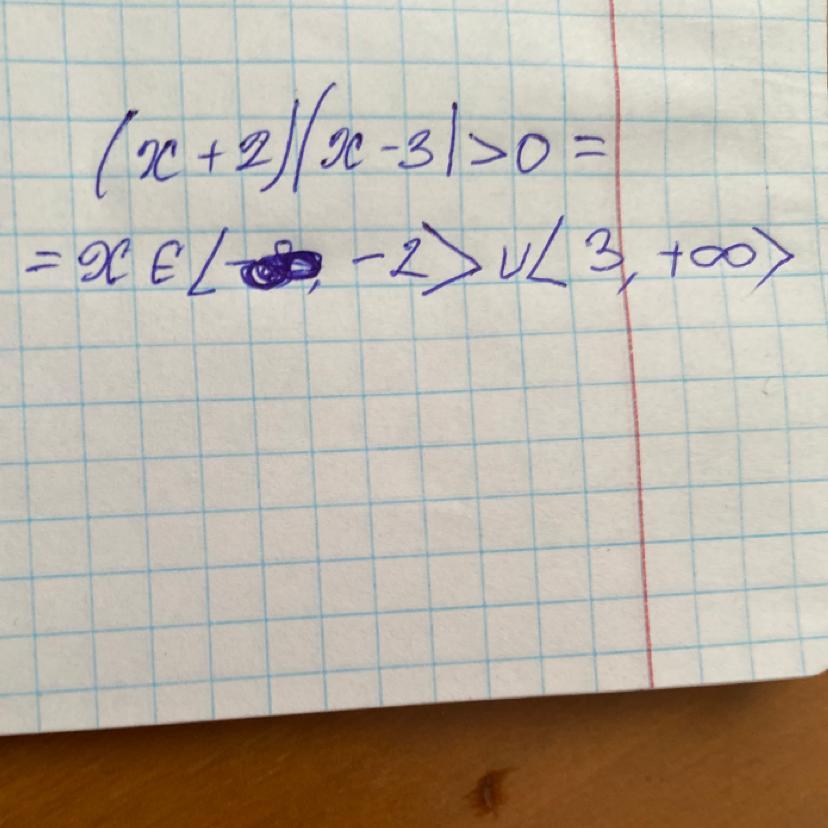 (x+2)(x-3)>0=
=x∈⟨-, -2⟩∪⟨3, +∞⟩